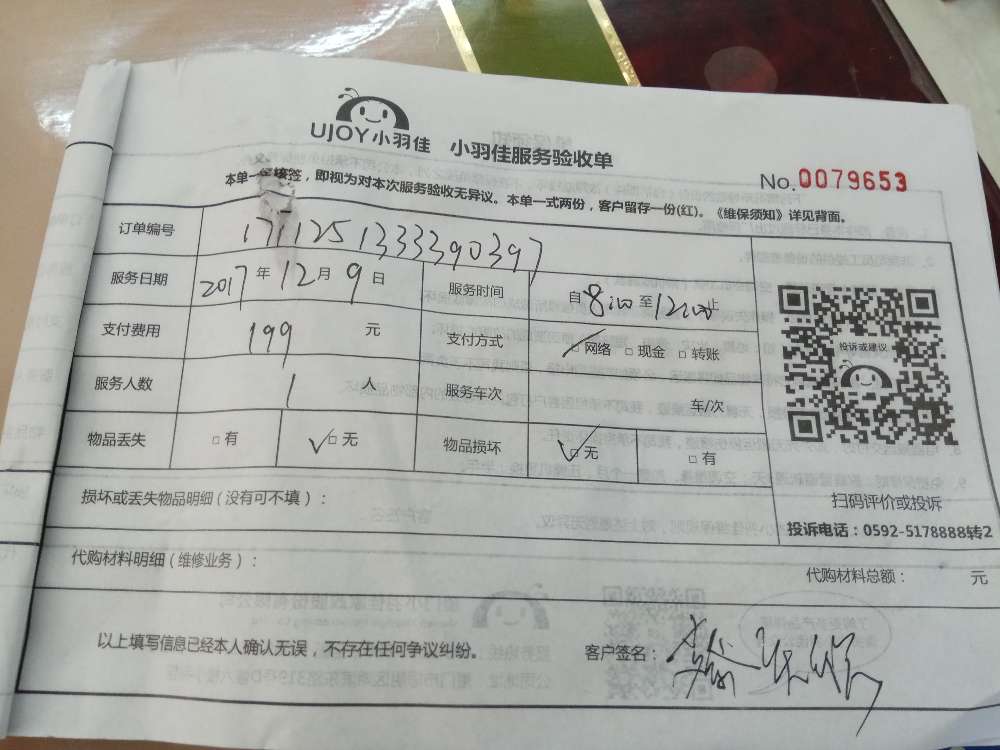 UJOY小羽佳 小羽佳服务验收单
No.0079653
本单一经核签，即视为对本次服务验收无异议。本单一式两份，客户留存一份(红)。《维保须知》详见背面。
订单编号 1711251333390397
服务日期 2017年12月9日 服务时间 自8:00至12:00止
支付费用 199 元 支付方式 □网络 □现金 □转账
服务人数 1 人 服务车次 车/次
物品丢失 □有 □无 物品损坏 □无 □有
投诉或建议
扫码评价或投诉
投诉电话：0592-5178888转2
损坏或丢失物品明细(没有可不填)：
代购材料明细(维修业务)：
代购材料总额： 元
以上填写信息已经本人确认无误，不存在任何争议纠纷。 客户签名：